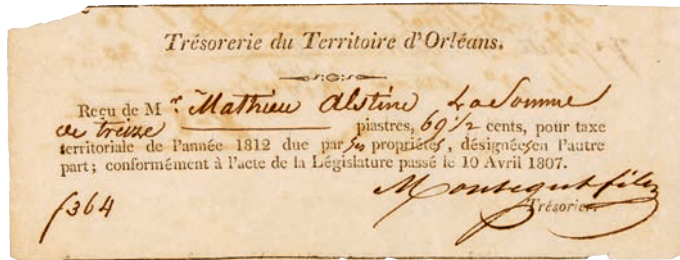 Trésorerie du Territoire d'Orléans.
Reçu de M.r Mathieu Alstine La Somme
de treize piastres, 69 1/2 cents, pour taxe
territoriale de l'année 1812 due par ses propriétés, désignées en l'autre
part; conformément à l'acte de la Législature passé le 10 Avril 1807.
Montegut fils
Trésorier.